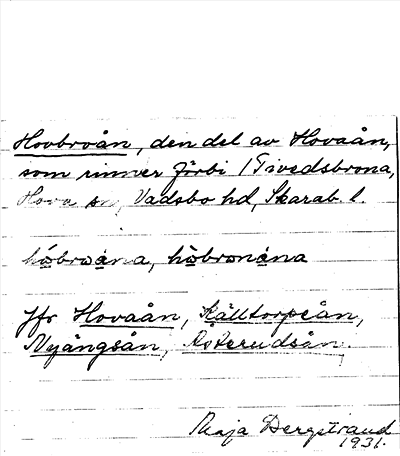 Hovbroån, den del av Hovaån,
som rinner förbi 1 Tivedsbrona,
Hova sn, Vadsbo hd, Skarab. l.
hòbroána, hòbronána
Jfr Hovaån, Källtorpeån,
Nyängsån, Åsterudsån.
Maja Bergstrand
1931.